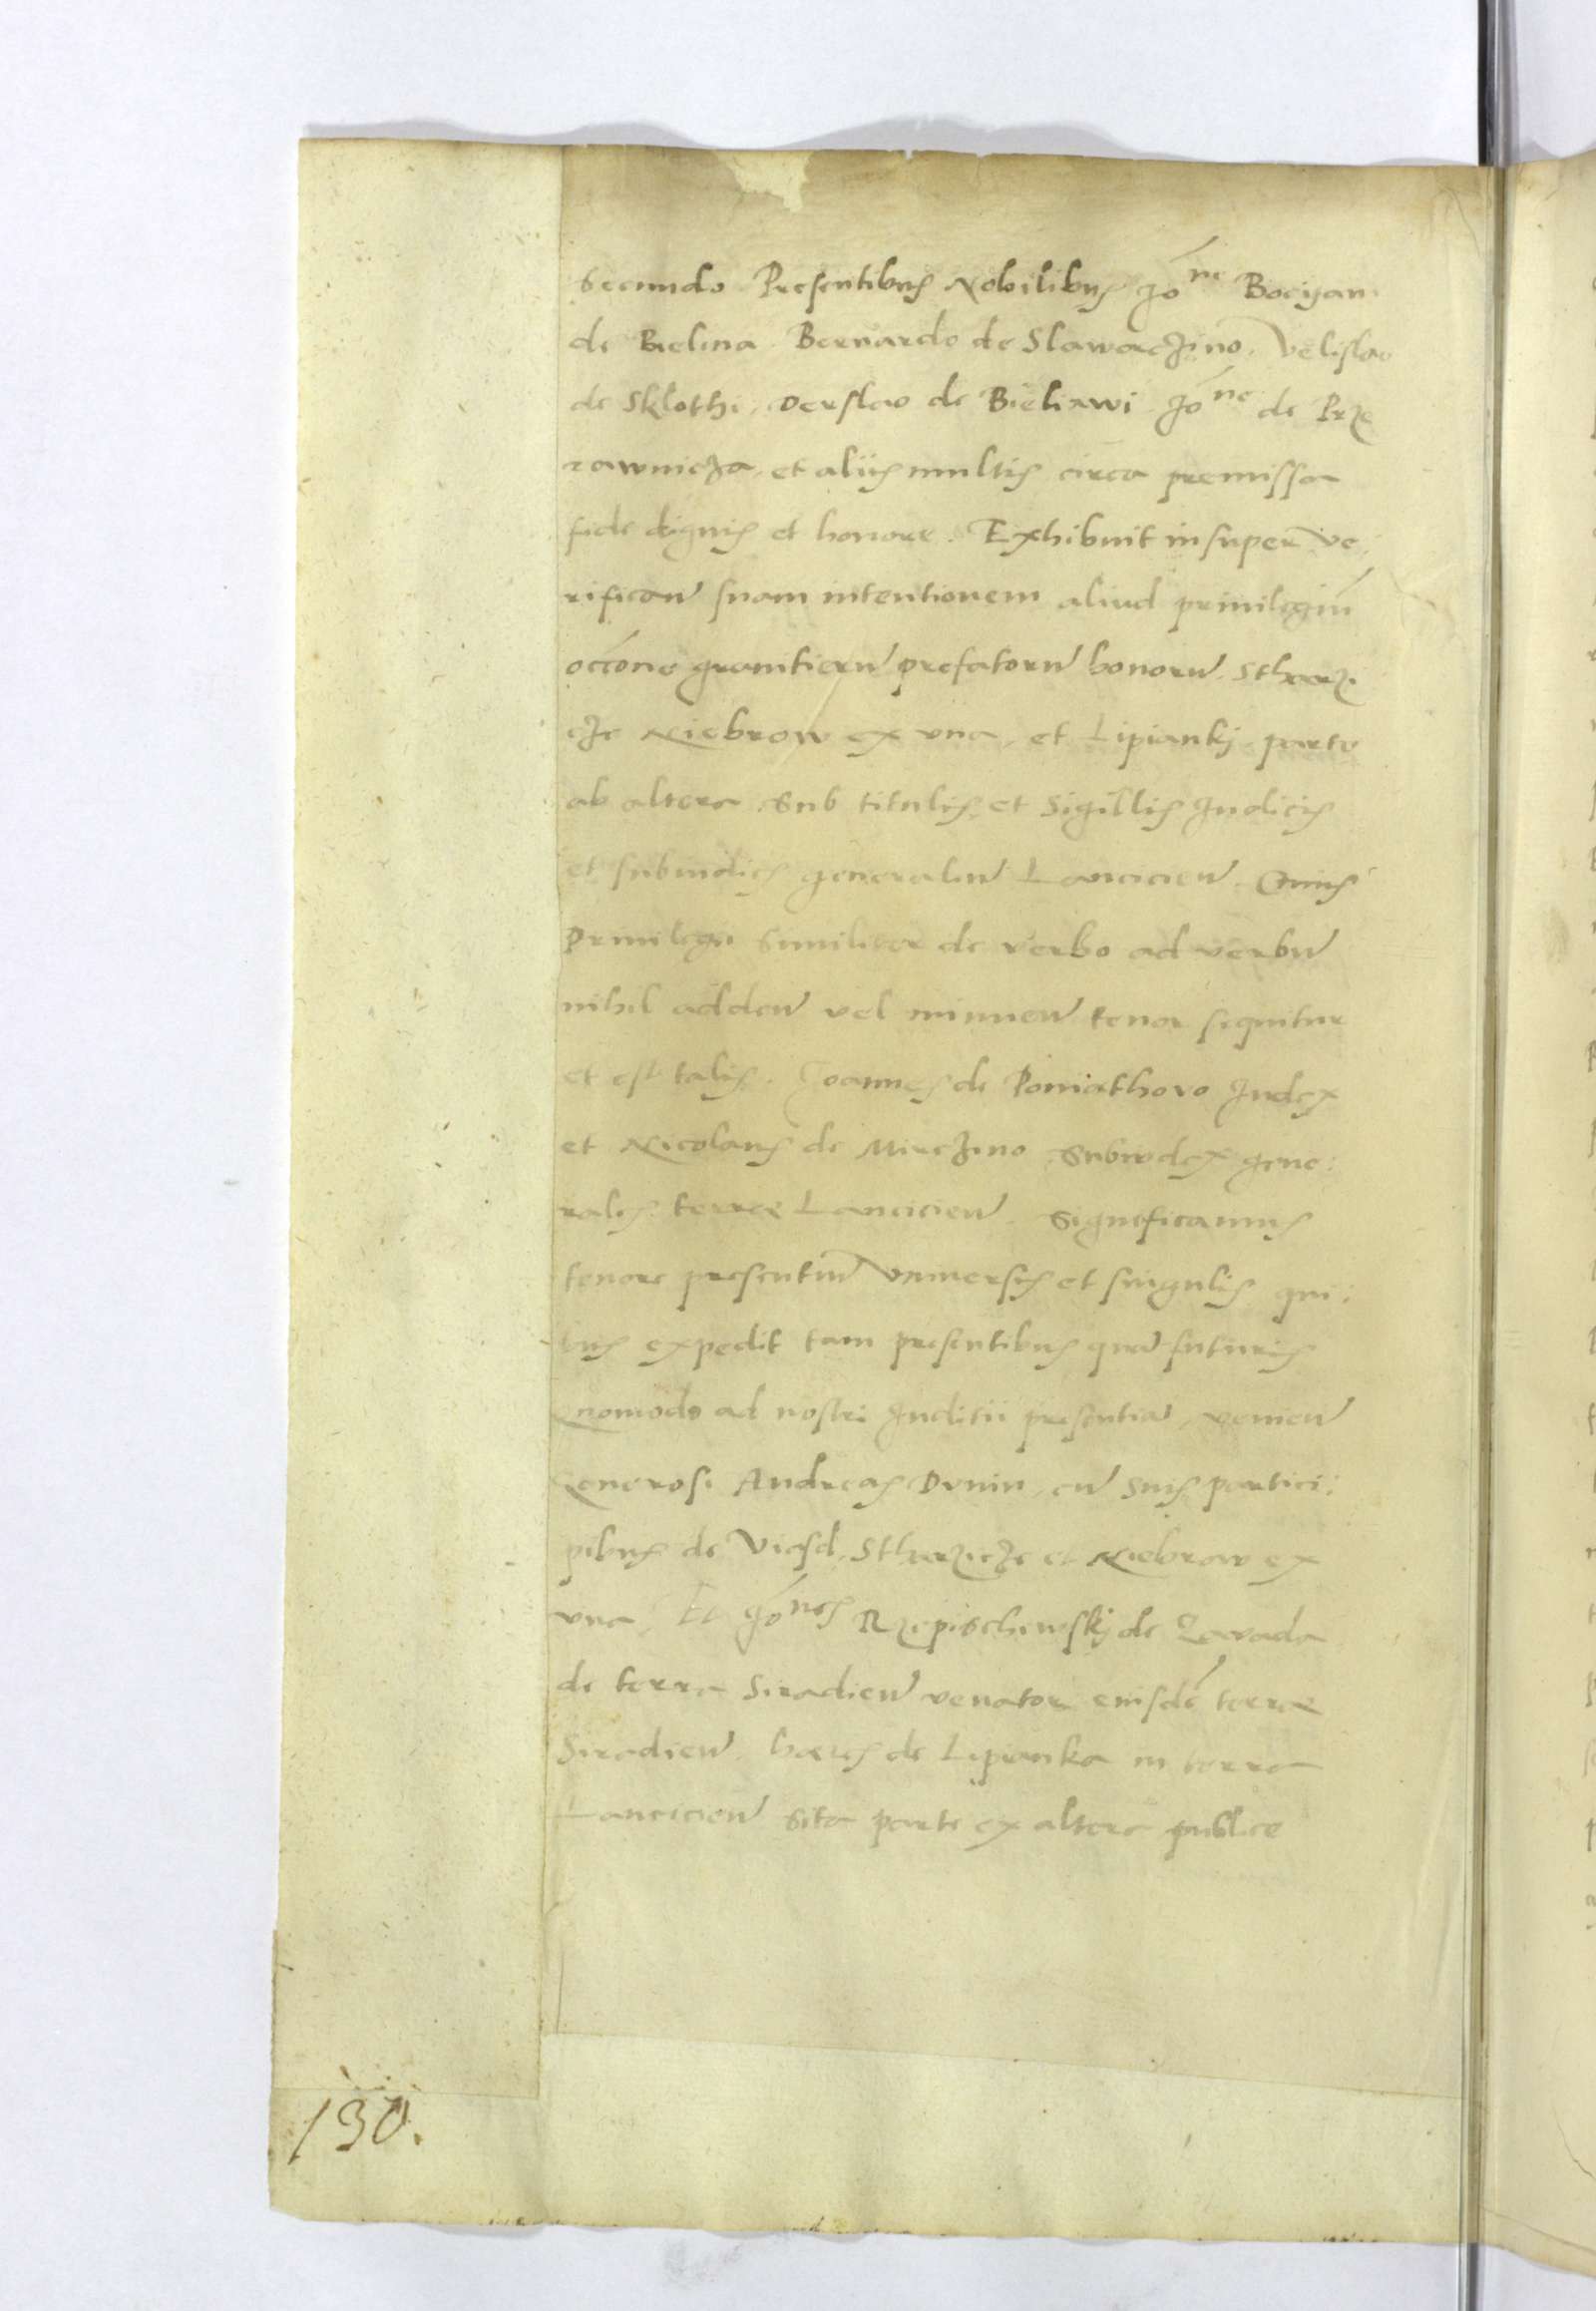 Secundo Presentibus Nobilibus Jo^ne Bocyan
de Bielina Bernardo de Slawaczino, Velislao
de Sklothi, Derslao de Bieliawi Jo^ne de Prze
rawnicza, et aliis multis circa premissa
fide dignis et honore. Exhibuit insuper ve:
rifican̄ suam intentionem aliud privilegiū
granitierū prefatorū bonorū Stharzi
cze Niebrow ex una, et Lipianky parte
ab altera sub titulis, et Sigillis Judicis
et subiudicis generaliū Lancicien̄ Cuius
Privilegii similiter de verbo ad verbū
nihil adden̄ vel minuen̄ tenor sequitur
et est talis. Joannes de Poniathovo Judex
et Nicolaus de Mirczino Subiudex gene:
rales terrae Lancicien̄. Significamus
tenore presentiū Universis et singulis qui:
bus expedit tam presentibus quā futuris
Quomodo ad nostri Juditii presentiā, venien̄
Generosi Andreas Dunin, cū suis partici:
pibus de Viasd, Stharzicze et Niebrow ex
una, Et Jo^nes Rzepischewsky de Zavada
de terra Siradien̄ venator eiusdē terrae
Siradien̄. haeres de Lipianka in terra
Lancicien̄ sita parte ex altera publice
130.